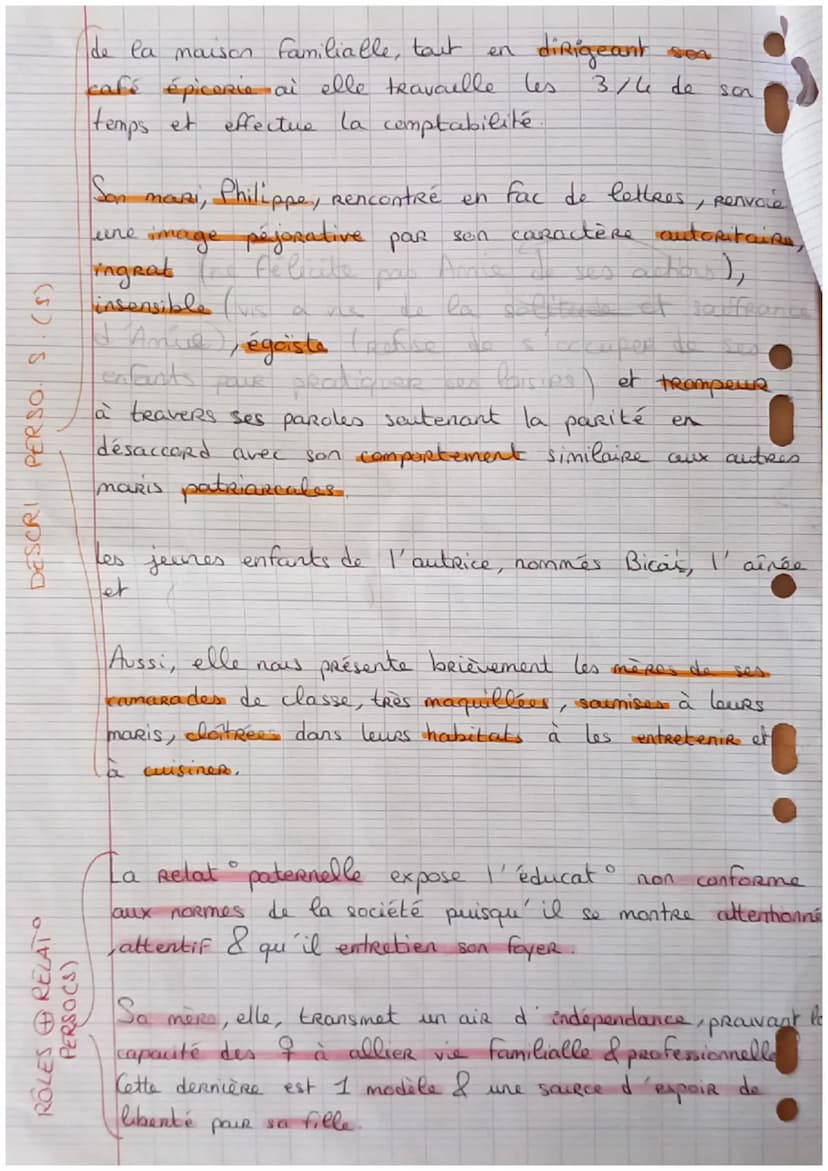 de la maison familialle, tout en dirigeant son
café épicerie où elle travaille les 3/4 de son
temps et effectue la comptabilité.
Son mari, Philippe, rencontré en fac de lettres, renvoie
une image péjorative par son caractère autoritaire,
ingrat (ne félicite pas Annie de ses actions),
insensible (vis à vis de la solitude et souffrance
d'Annie), égoïste (refuse de s'occuper de ses
enfants pour pratiquer ses loisirs) et trompeur
à travers ses paroles soutenant la parité en
désaccord avec son comportement similaire aux autres
maris patriarcales.
DESCRI PERSO. S. (S)
Les jeunes enfants de l'autrice, nommés Bicou, l'aînée
et
Aussi, elle nous présente brièvement les mères de ses
camarades de classe, très maquillées, soumises à leurs
maris, cloîtrées dans leurs habitats à les entretenir et
à cuisiner.
La relat° paternelle expose l'éducat° non conforme
aux normes de la société puisqu'il se montre attentionné
, attentif & qu'il entretien son foyer.
RÔLES ⊕ RELAT°
PERSO(S)
Sa mère, elle, transmet un air d'indépendance, prouvant la
capacité des ♀ à allier vie familialle & professionnelle
Cette dernière est 1 modèle & une source d'espoir de
liberté pour sa fille.